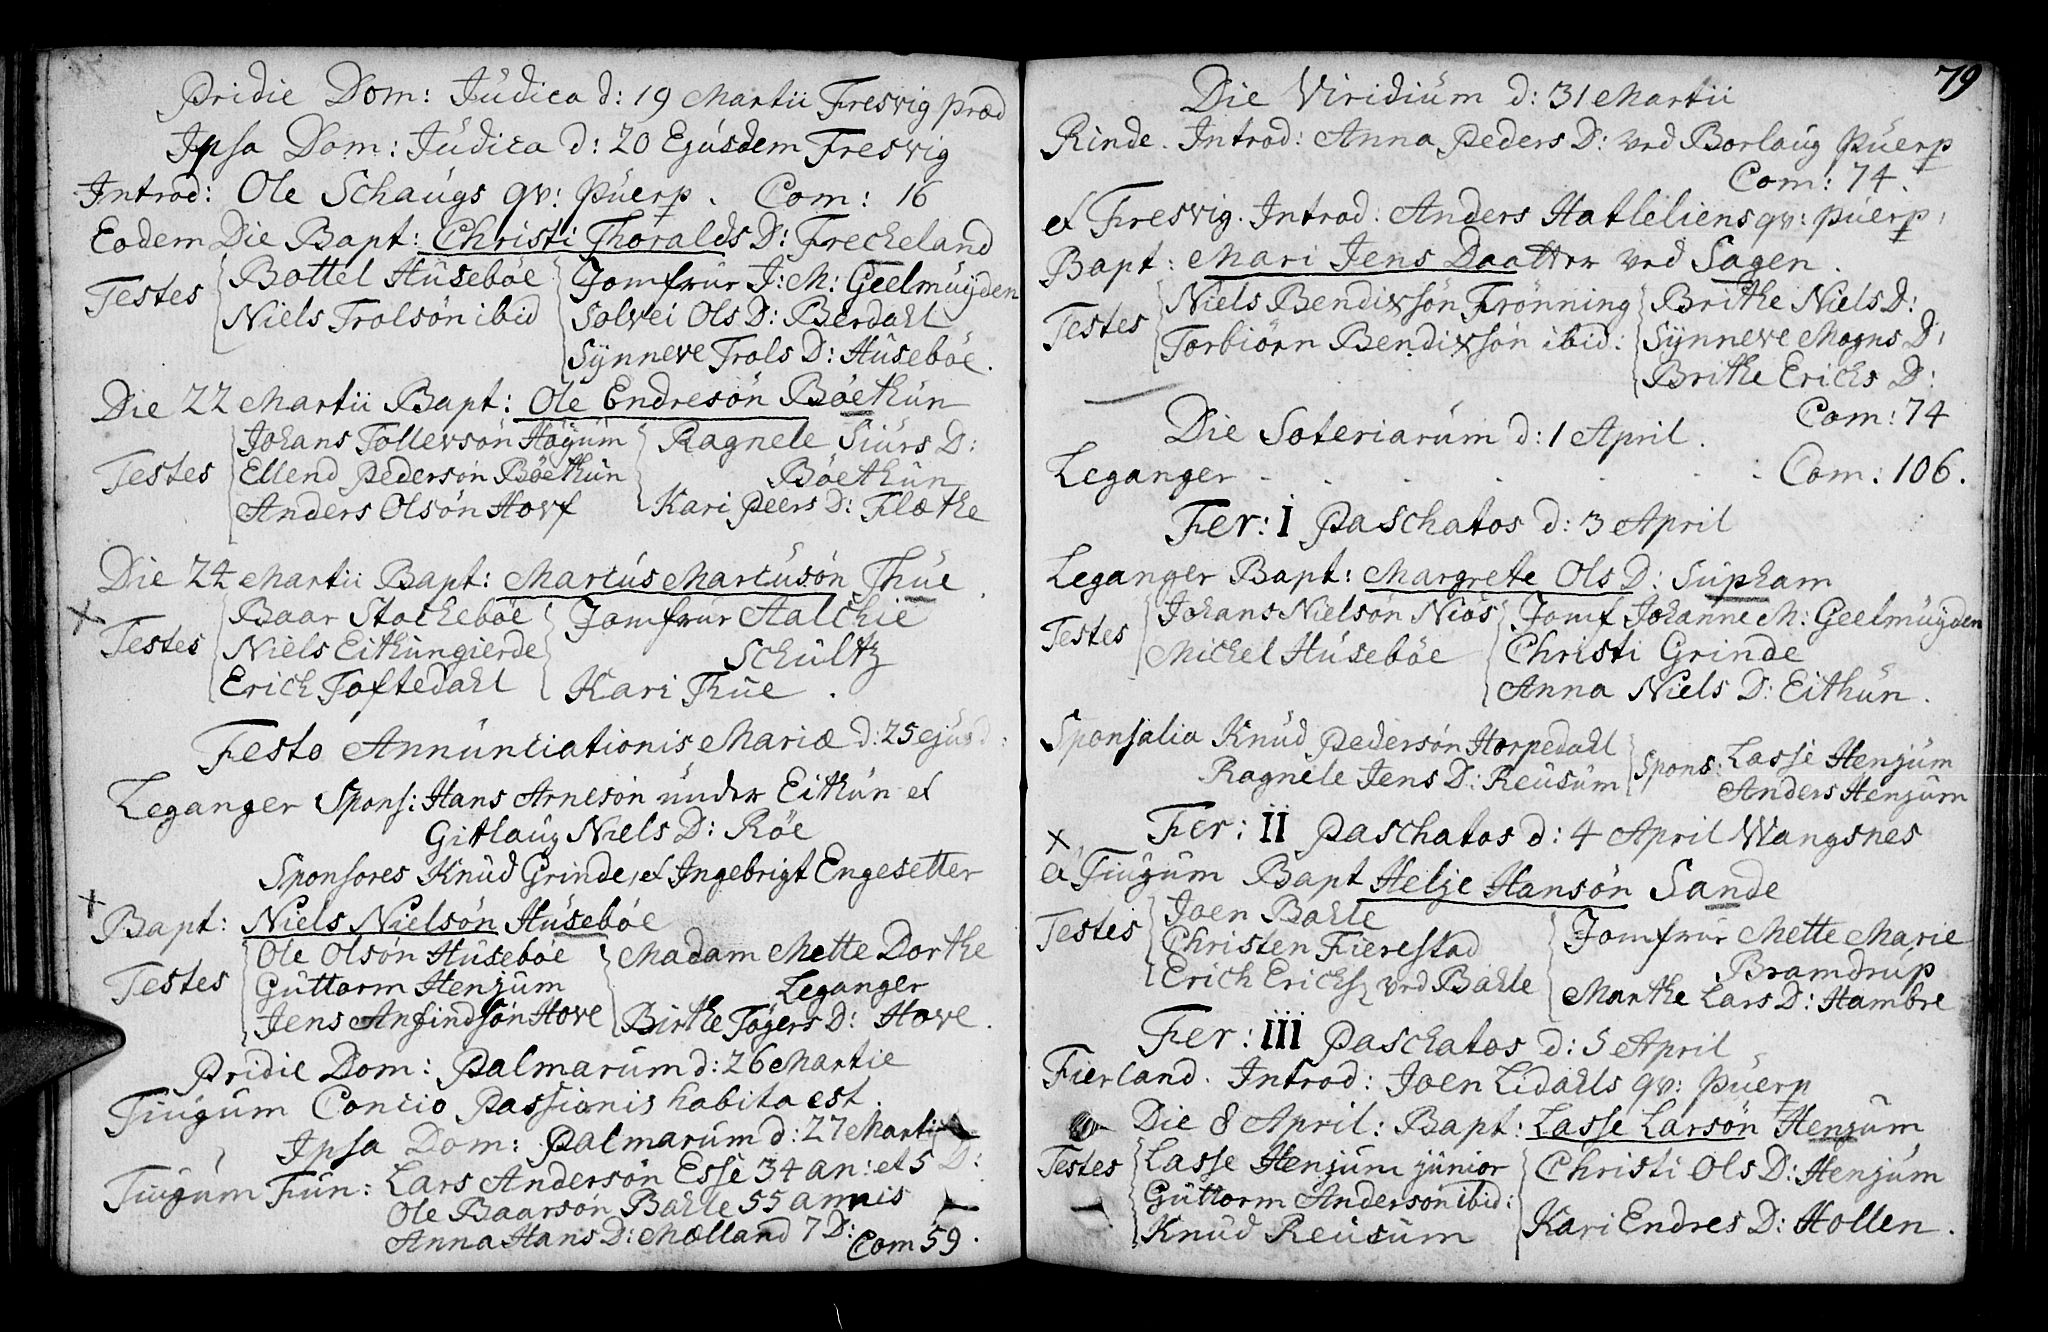 Pridie Dom: Judica d: 19 Martii Fresvig præd
Ipsa Dom: Judica d: 20 Ejusdem Fresvig
Introd: Ole Schaugs qv: puerp. Com: 16
Eodem Die Bapt: Christi Thoralds D: Frecheland
Testes Bottel Husebøe Jomfrur J: M: Geelmuyden
Niels Trolsøn ibid Solvei Ols D: Berdahl
Synneve Trols D: Husebøe.
Die 22 Martii Bapt: Ole Endresøn Bøethun
Johans Tollevsøn Høyum Ragnele Siurs D:
Testes Ellend Pedersøn Bøethun Bøethun
Anders Olsøn Hovf Kari Peers D: Flæthe
Die 24 Martii Bapt: Marcus Marcusøn Thue
x
Testes Baar Stochebøe Jomfrur Aalchie
Niels Eithungierde Schultz
Erich Toftedahl Kari Thue.
Festo Annunciationis Mariæ d: 25 ejusd:
Leganger Spons: Hans Arnesøn under Eithun et
Gitlaug Niels D: Røe
Sponsores Knud Grinde, et Ingebrigt Engesetter
x
Bapt: Niels Nielsøn Husebøe
Ole Olsøn Husebøe Madam Mette Dorthe
Testes Guttorm Henjum Leganger
Jens Anfindsøn Hove Birthe Tøgers D: Hove.
Pridie Dom: Palmarum d: 26 Martie
Tiugum Concio Passionis habita est.
Ipsa Dom: Palmarum d: 27 Martij
Tiugum Fun: Lars Andersøn Esse 34 an: et 5 D:
Ole Baarsøn Bahle 55 annis
Anna Hans D: Mælland 7 D: Com 59.
79
Die Viridium d: 31 Martii
Rinde. Introd: Anna Peders D: ved Borlaug puerp
Com: 74.
et Fresvig. Introd: Anders Hatleliens qv: puerp:
Bapt: Mari Jens Daatter ved Sagen.
Testes Niels Bendixsøn Frønning Brithe Niels D:
Torbiørn Bendixsøn ibid: Synneve Mogns D:
Brithe Erichs D:
Com: 74
Die Soteriarum d: 1 April.
Leganger Com: 106.
Fer: I Paschatos d: 3 April
Leganger Bapt: Margrete Ols D: Supham
Testes Johans Nielsøn Niøs Jomf Johanne M: Geelmuyden
Michel Husebøe Christi Grinde
Anna Niels D: Eithun.
Sponsalia Knud Pedersøn Horpedahl Spons: Lasse Henjum
Ragnele Jens D: Reusum Anders Henjum
Fer: II Paschatos d: 4 April Wangsnes
x
et Tiugum Bapt Helje Hansøn Sande
Testes Joen Bahle Jomfrur Mette Marie
Christen Fierestad Bramdrup
Erich Erichs ved Bahle Marthe Lars D: Hambre
Fer: III Paschatos d: 5 April
Fierland. Introd: Joen Lidahls qv: puerp
Die 8 April: Bapt: Lasse Larsøn Henjum
Testes Lasse Henjum junior Christi Ols D: Henjum
Guttorm Andersøn ibid:
Knud Reusum Kari Endres D: Hollen.